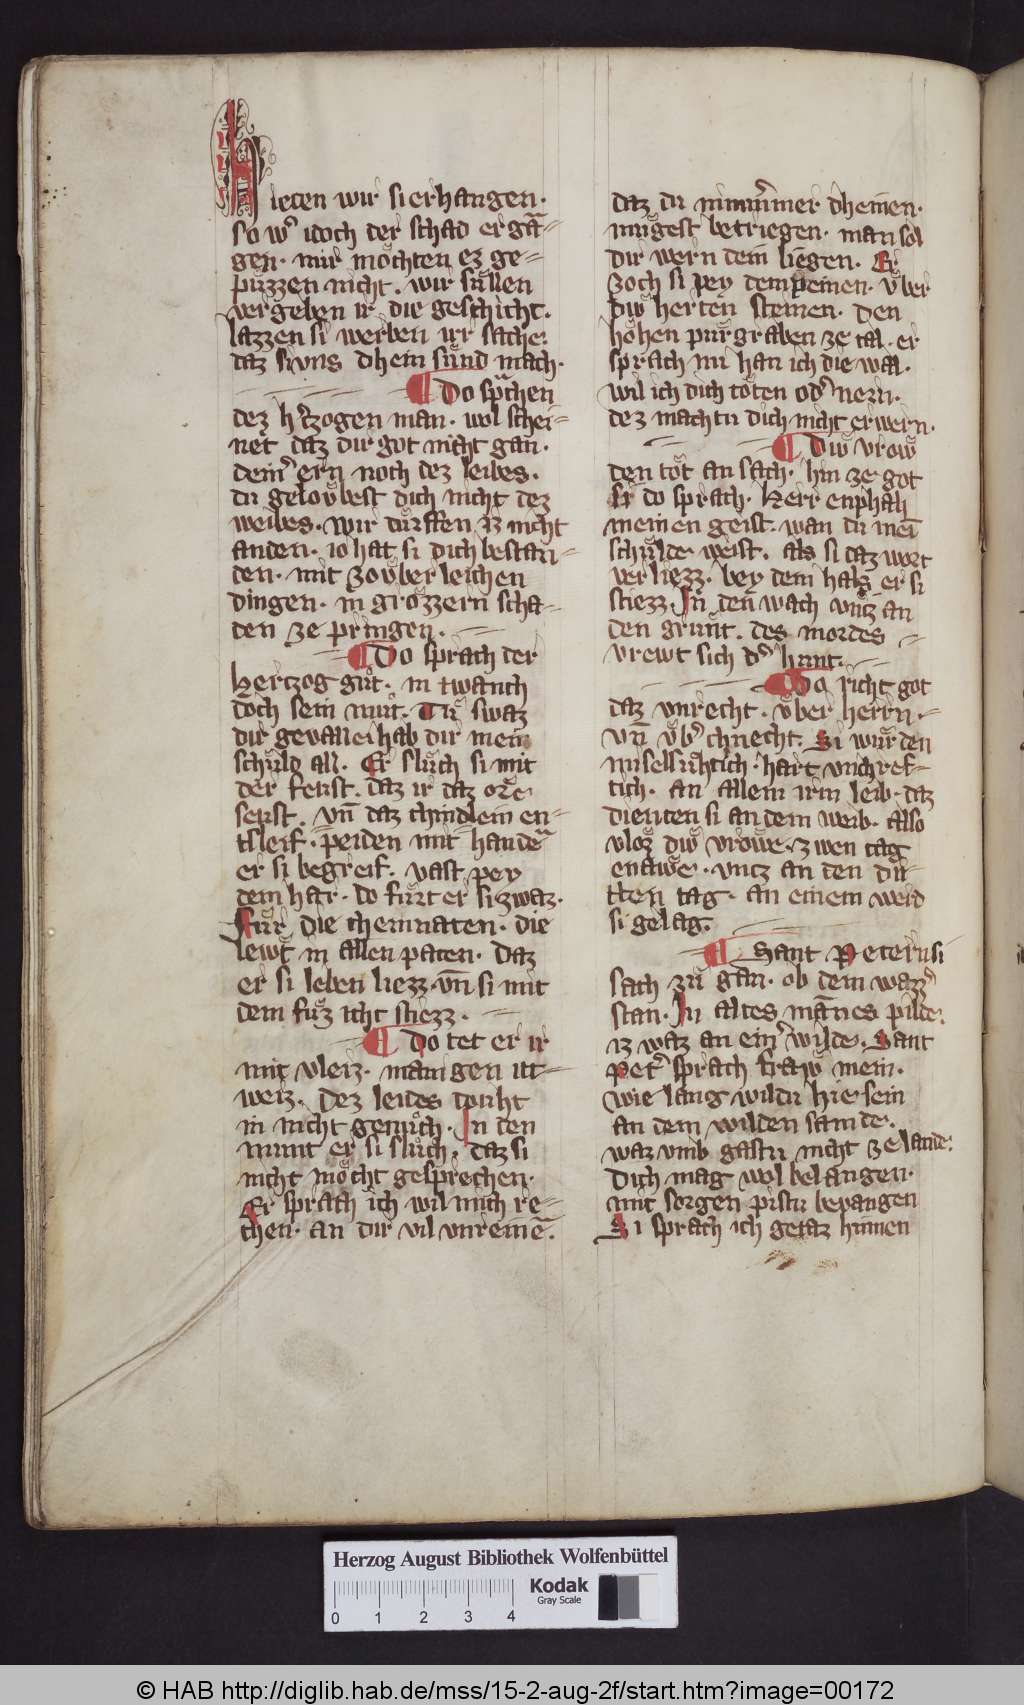 Hieten wir si erhangen·
so wͦ idoch der schad ergā-
gen· mir moͤchten ez ge-
puͤzzen nicht. wir suͤllen
vergeben ir die geschicht.
lazzen si werben ir sache·
daz si vns dhein suͤnd mach·
¶ Do sprachen
dez h͛tzogen man· wol schei-
net daz dir got nicht gan·
deinͬ ern noch dez leibes·
du geloͮbest dich nicht dez
weibes· wir duͤrffen iz nicht
anden· io hat si dich bestan-
den· mit zoͮberleichen
dingen· in groͤzzern scha-
den ze pringen·
¶ Do sprach der
Hertzog guͦt· in twanch
doch sein muͦt· Tuͦ swaz
dir geualle ihab dir mein
schuld all· Er sluͦch si mit
der fenst· daz ir daz ore
senst· vn̄ daz chindlein en-
tsleif· peiden mit handē
er si begreif· vast pey
dem har· do fuͦrt er si zwaz·
Fuͤr die chemnaten· die
lewt in allen paten· Daz
er si leben liezz· vn̄ si mit
dem fuͦz icht stiezz·
¶ Do tet er ir
mit vleiz· manigen it-
weiz· Dez leides douht
in nicht genuͦch· In den
munt er si sluͦch· daz si
nicht moͤcht gesprechen·
Er sprach ich wil mich re-
chen· an dir vil vnreinē·
daz du nimm̄mer dheinen·
mugest betriegen· man sol
dir wern dein liegen· Er
zoch si pey dem peinen· vͤber
diw herten steinen· Den
hohen purgraben ze tal· er
sprach nu han ich die wal·
wil ich dich toͤten odͬ nern·
dez machtu dich nicht erwern·
¶ Diw vrow
den tot an sach· hin ze got
si do sprach· Herr enphah
meinen geist· wan du mein
schulde weist· als si daz wort
verliezz· bey dem hals er si
stiezz· In den wach vntz an
den grunt· des mordes
vrewt sich dͬ hunt·
¶ Do richt got
daz vnrecht· vͤber herrn·
vn̄ vͤbͬ chnecht· Si wurden
miselsuͤhtich· hart vnchref-
tich· an allem irm leib· daz
dienten si an dem weib· also
vloz diw vrowe· zwen tag
enawe· vntz an den dri-
tten tag· an einem werd
si gelag·
¶ Sant Petern si
sach zuͦ gan· ob dem wazzͬ
stan· In altes mannes pilde·
iz waz an einͬ wilde· Sant
Petͬ sprach fraw mein·
wie lang wildu hie sein
an dem wilden sande·
waz vmb gastu nicht ze lande·
Dich mag wol belangen·
mit sorgen pistu bevangen
Si sprach ich getaz hinnen
Herzog August Bibliothek Wolfenbüttel
Kodak
Gray Scale
0 1 2 3 4
© HAB http://diglib.hab.de/mss/15-2-aug-2f/start.htm?image=00172